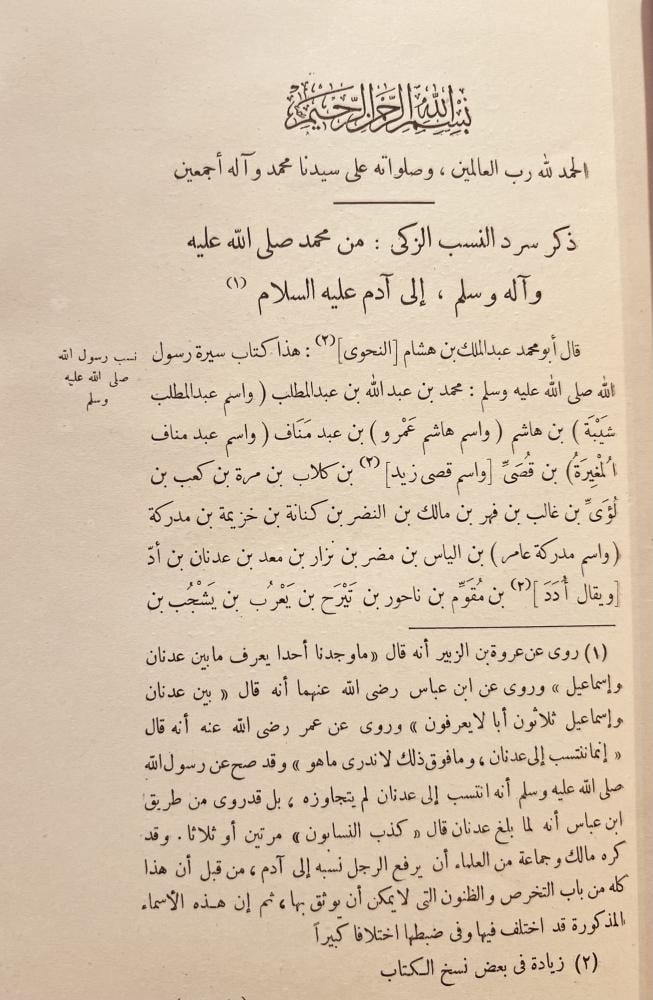 بسم الله الرحمن الرحيم
الحمد لله رب العالمين ، وصلواته على سيدنا محمد وآله أجمعين
ذكر سرد النسب الزكى : من محمد صلى الله عليه
وآله وسلم ، إلى آدم عليه السلام (١)
قال أبو محمد عبدالملك بن هشام [النحوى](٢) : هذا كتاب سيرة رسول
نسب رسول الله
صلى الله عليه
وسلم
الله صلى الله عليه وسلم : محمد بن عبد الله بن عبدالمطلب ( واسم عبدالمطلب
شَيْبَة ) بن هاشم ( واسم هاشم عَمْرو ) بن عبد مَنَاف ( واسم عبد مناف
الْمُغِيرَةُ ) بن قُصَىٍّ [واسم قصى زيد](٢) بن كلاب بن مرة بن كعب بن
لُؤَىِّ بن غالب بن فهر بن مالك بن النضر بن كنانة بن خزيمة بن مدركة
( واسم مدركة عامر ) بن الياس بن مضر بن نزار بن معد بن عدنان بن أدّ
[ويقال أُدَدَ ](٢) بن مُقَوِّم بن ناحور بن تَيْرَح بن يَعْرُب بن يَشْجُب بن
(١) روى عن عروة بن الزبير أنه قال «ماوجدنا أحدا يعرف مابين عدنان
وإسماعيل » وروى عن ابن عباس رضى الله عنهما أنه قال « بين عدنان
وإسماعيل ثلاثون أبا لايعرفون » وروى عن عمر رضى الله عنه أنه قال
« إنما ننتسب إلى عدنان ، ومافوق ذلك لاندرى ماهو » وقد صح عن رسول الله
صلى الله عليه وسلم أنه انتسب إلى عدنان لم يتجاوزه ، بل قدروى من طريق
ابن عباس أنه لما بلغ عدنان قال « كذب النسابون » مرتين أو ثلاثا . وقد
كره مالك وجماعة من العلماء أن يرفع الرجل نسبه إلى آدم ، من قبل أن هذا
كله من باب التخرص والظنون التى لايمكن أن يوثق بها ، ثم إن هذه الأسماء
المذكورة قد اختلف فيها وفى ضبطها اختلافا كبيراً
(٢) زيادة فى بعض نسخ الكتاب